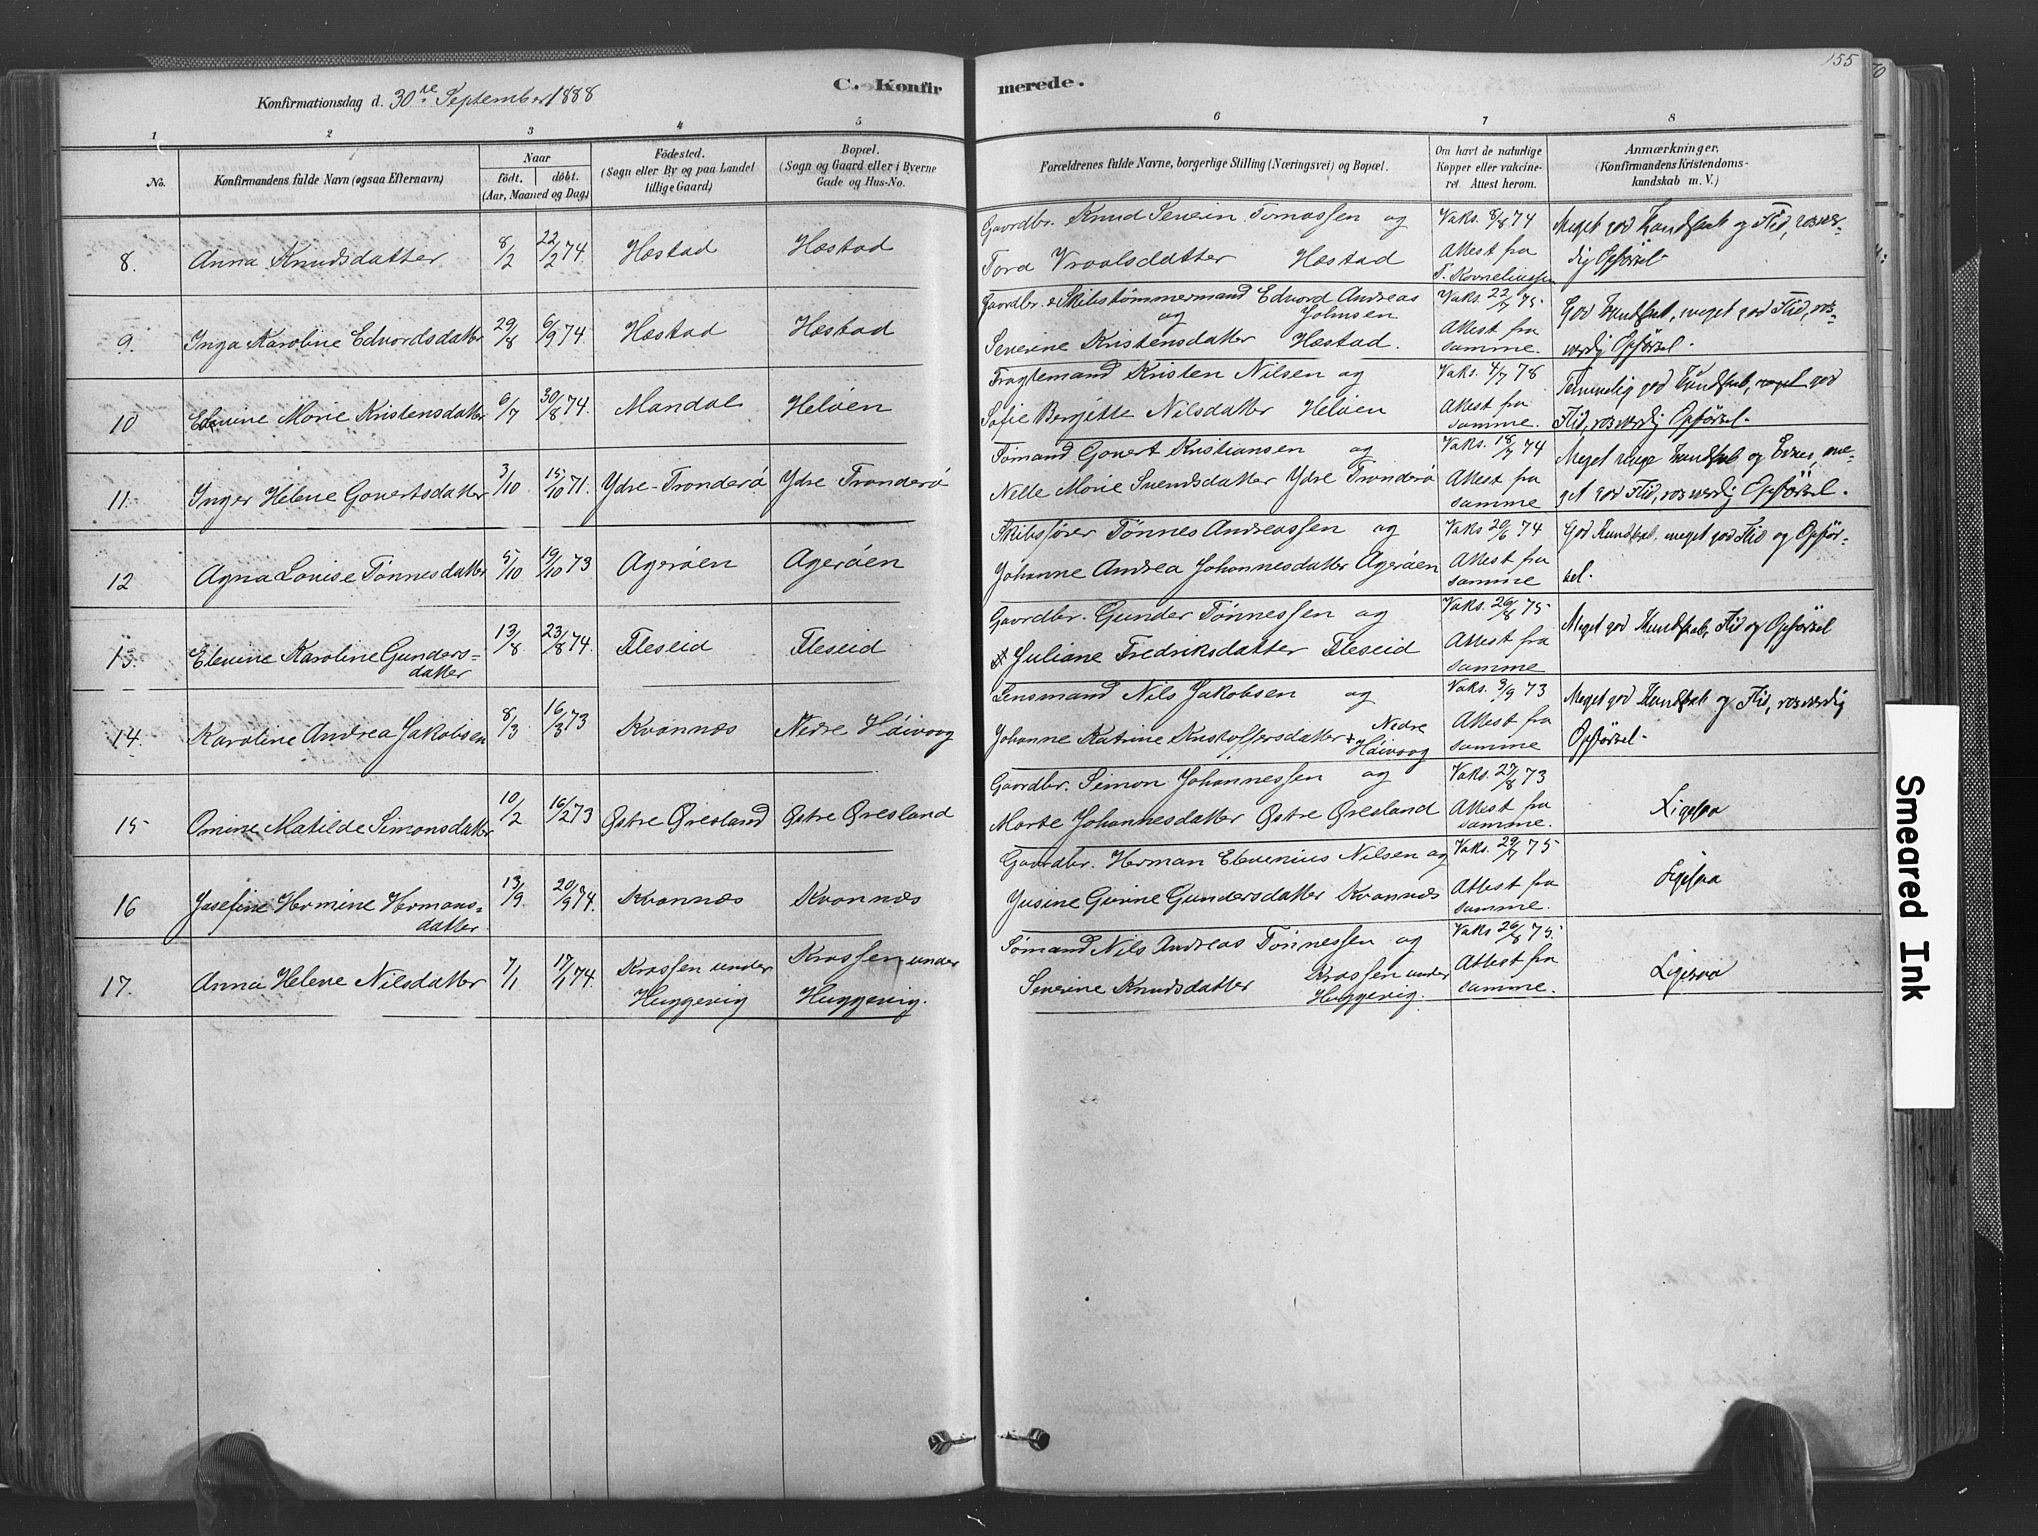 155
Konfirmationsdag d. 30te September 1888
C. Konfirmerede.
1 2 3 4 5 6 7 8
No.
Konfirmandens fulde Navn (ogsaa Efternavn)
Naar
födt. döbt.
(Aar, Maaned og Dag)
Födested.
(Sogn eller By og paa Landet
tillige Gaard)
Bopæl.
(Sogn og Gaard eller i Byerne
Gade og Hus-No.
Forældrenes fulde Navne, borgerlige Stilling (Næringsvei) og Bopæl.
Om havt de naturlige
Kopper eller vakcine-
ret. Attest herom.
Anmærkninger.
(Konfirmandens Kristendoms-
kundskab m. V.)
8. Anna Knudsdatter 8/2 22/2 74 Hæstad Hæstad
Gaardbr. Knud Severin Tomassen og
Tora Vraalsdatter Hæstad
Vaks. 8/8 74
Attest fra
T. Korneliussen
Meget god Kundskab og Flid, rosvær-
dig Opførsel
9. Inga Karoline Edvardsdatter 29/8 6/9 74 Hæstad Hæstad
Gaardbr. & Skibstømmermand Edvard Andreas
og Johnsen
Severine Kristensdatter Hæstad.
Vaks. 22/7 75
Attest fra
samme.
God Kundskab, meget god Flid, ros-
værdig Opførsel.
10 Elevine Marie Kristensdatter 6/7 30/8 74. Mandal Heløen
Fragtemand Kristen Nilsen og
Sofie Bergitte Nilsdatter Heløen
Vaks. 4/7 78
Attest fra
samme.
Temmelig god Kundskab, meget god
Flid, rosværdig Opførsel.
11. Inger Helene Govertsdatter 3/10 15/10 71. Ydre-Tronderø Ydre Tronderø
Sømand Govert Kristiansen og
Nelle Marie Svendsdatter Ydre Tronderø
Vaks. 18/7 74
Attest fra
samme
Meget ringe Kundskab og Evner, me-
get god Flid, rosværdig Opførsel.
12 Agna Louise Tønnesdatter 5/10 19/10 73 Agerøen Agerøen
Skibsfører Tønnes Andreassen og
Johanne Andrea Johannesdatter Agerøen
Vaks 20/6 74
Attest fra
samme
God Kundskab, meget god Flid og Opfør-
sel.
13. Elevine Karoline Gunders-
datter 13/8 23/8 74. Fleseid Fleseid
Gaardbr. Gunder Tønnessen og
Juliane Fredriksdatter Fleseid
Vaks. 26/8 75
Attest fra
samme
Meget god Kundskab, Flid og Opførsel
14. Karoline Andrea Jakobsen 8/3 16/3 73 Kvannæs Nedre Høivaag
Lensmand Nils Jakobsen og
Johanne Katrine Kristoffersdatter Nedre
Høivaag
Vaks. 3/9 73
Attest fra
samme
Meget god Kundskab og Flid, rosværdig
Opførsel.
15 Omine Matilde Simonsdatter 10/2 16/2 73 Østre Øresland Østre Øresland
Gaardbr. Simon Johannessen og
Marte Johannesdatter Østre Øresland
Vaks. 27/8 73
Attest fra
samme.
Ligesaa
16 Josefine Hermine Hermans-
datter 13/9 20/9 74. Kvannæs Kvannæs
Gaardbr. Herman Elevenius Nilsen og
Gurine Gundersdatter Kvannæs
Vaks. 29/7 75
Attest fra
samme.
Ligesaa
17. Anna Helene Nilsdatter 7/1 17/1 74. Krossen under
Huggevig
Krossen under
Huggevig.
Sømand Nils Andreas Tønnessen og
Severine Knudsdatter Krossen under
Huggevig.
Vaks 26/8 75.
Attest fra
samme.
Ligesaa
Smeared Ink